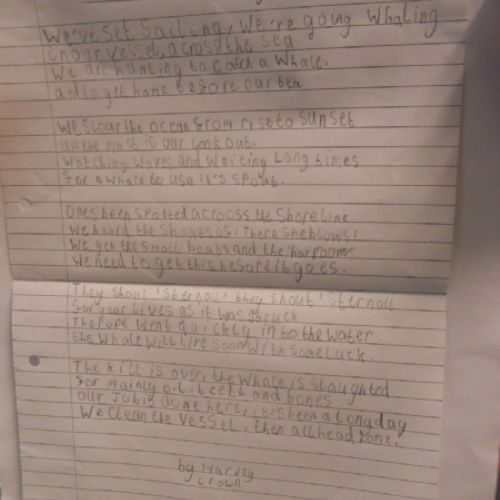 We've set sailing, we're going whaling
in our vessel, across the sea
We are hunting to catch a whale.
and to get home before our tea

We scour the ocean from rise to sunset
up the mast is our look out.
watching waves and waiting long times
for a whale to use it's spout.

Ones been spotted acrooss the shoreline
we heard the shouts of! There she blows!
We get the small boats and the 'harpoons
We need to get this before it goes.

They shout 'Sternall' they shout 'Sternall
for your lives as it was struck
The rope went quickly in to the water
the whale will tire soon with some luck.

The kill is over, the whale is slaughted
for mainly oil, teeth and bones
our job is done here, it's been a long day
We clean the vessel, then all head home.

by Harvey
crown